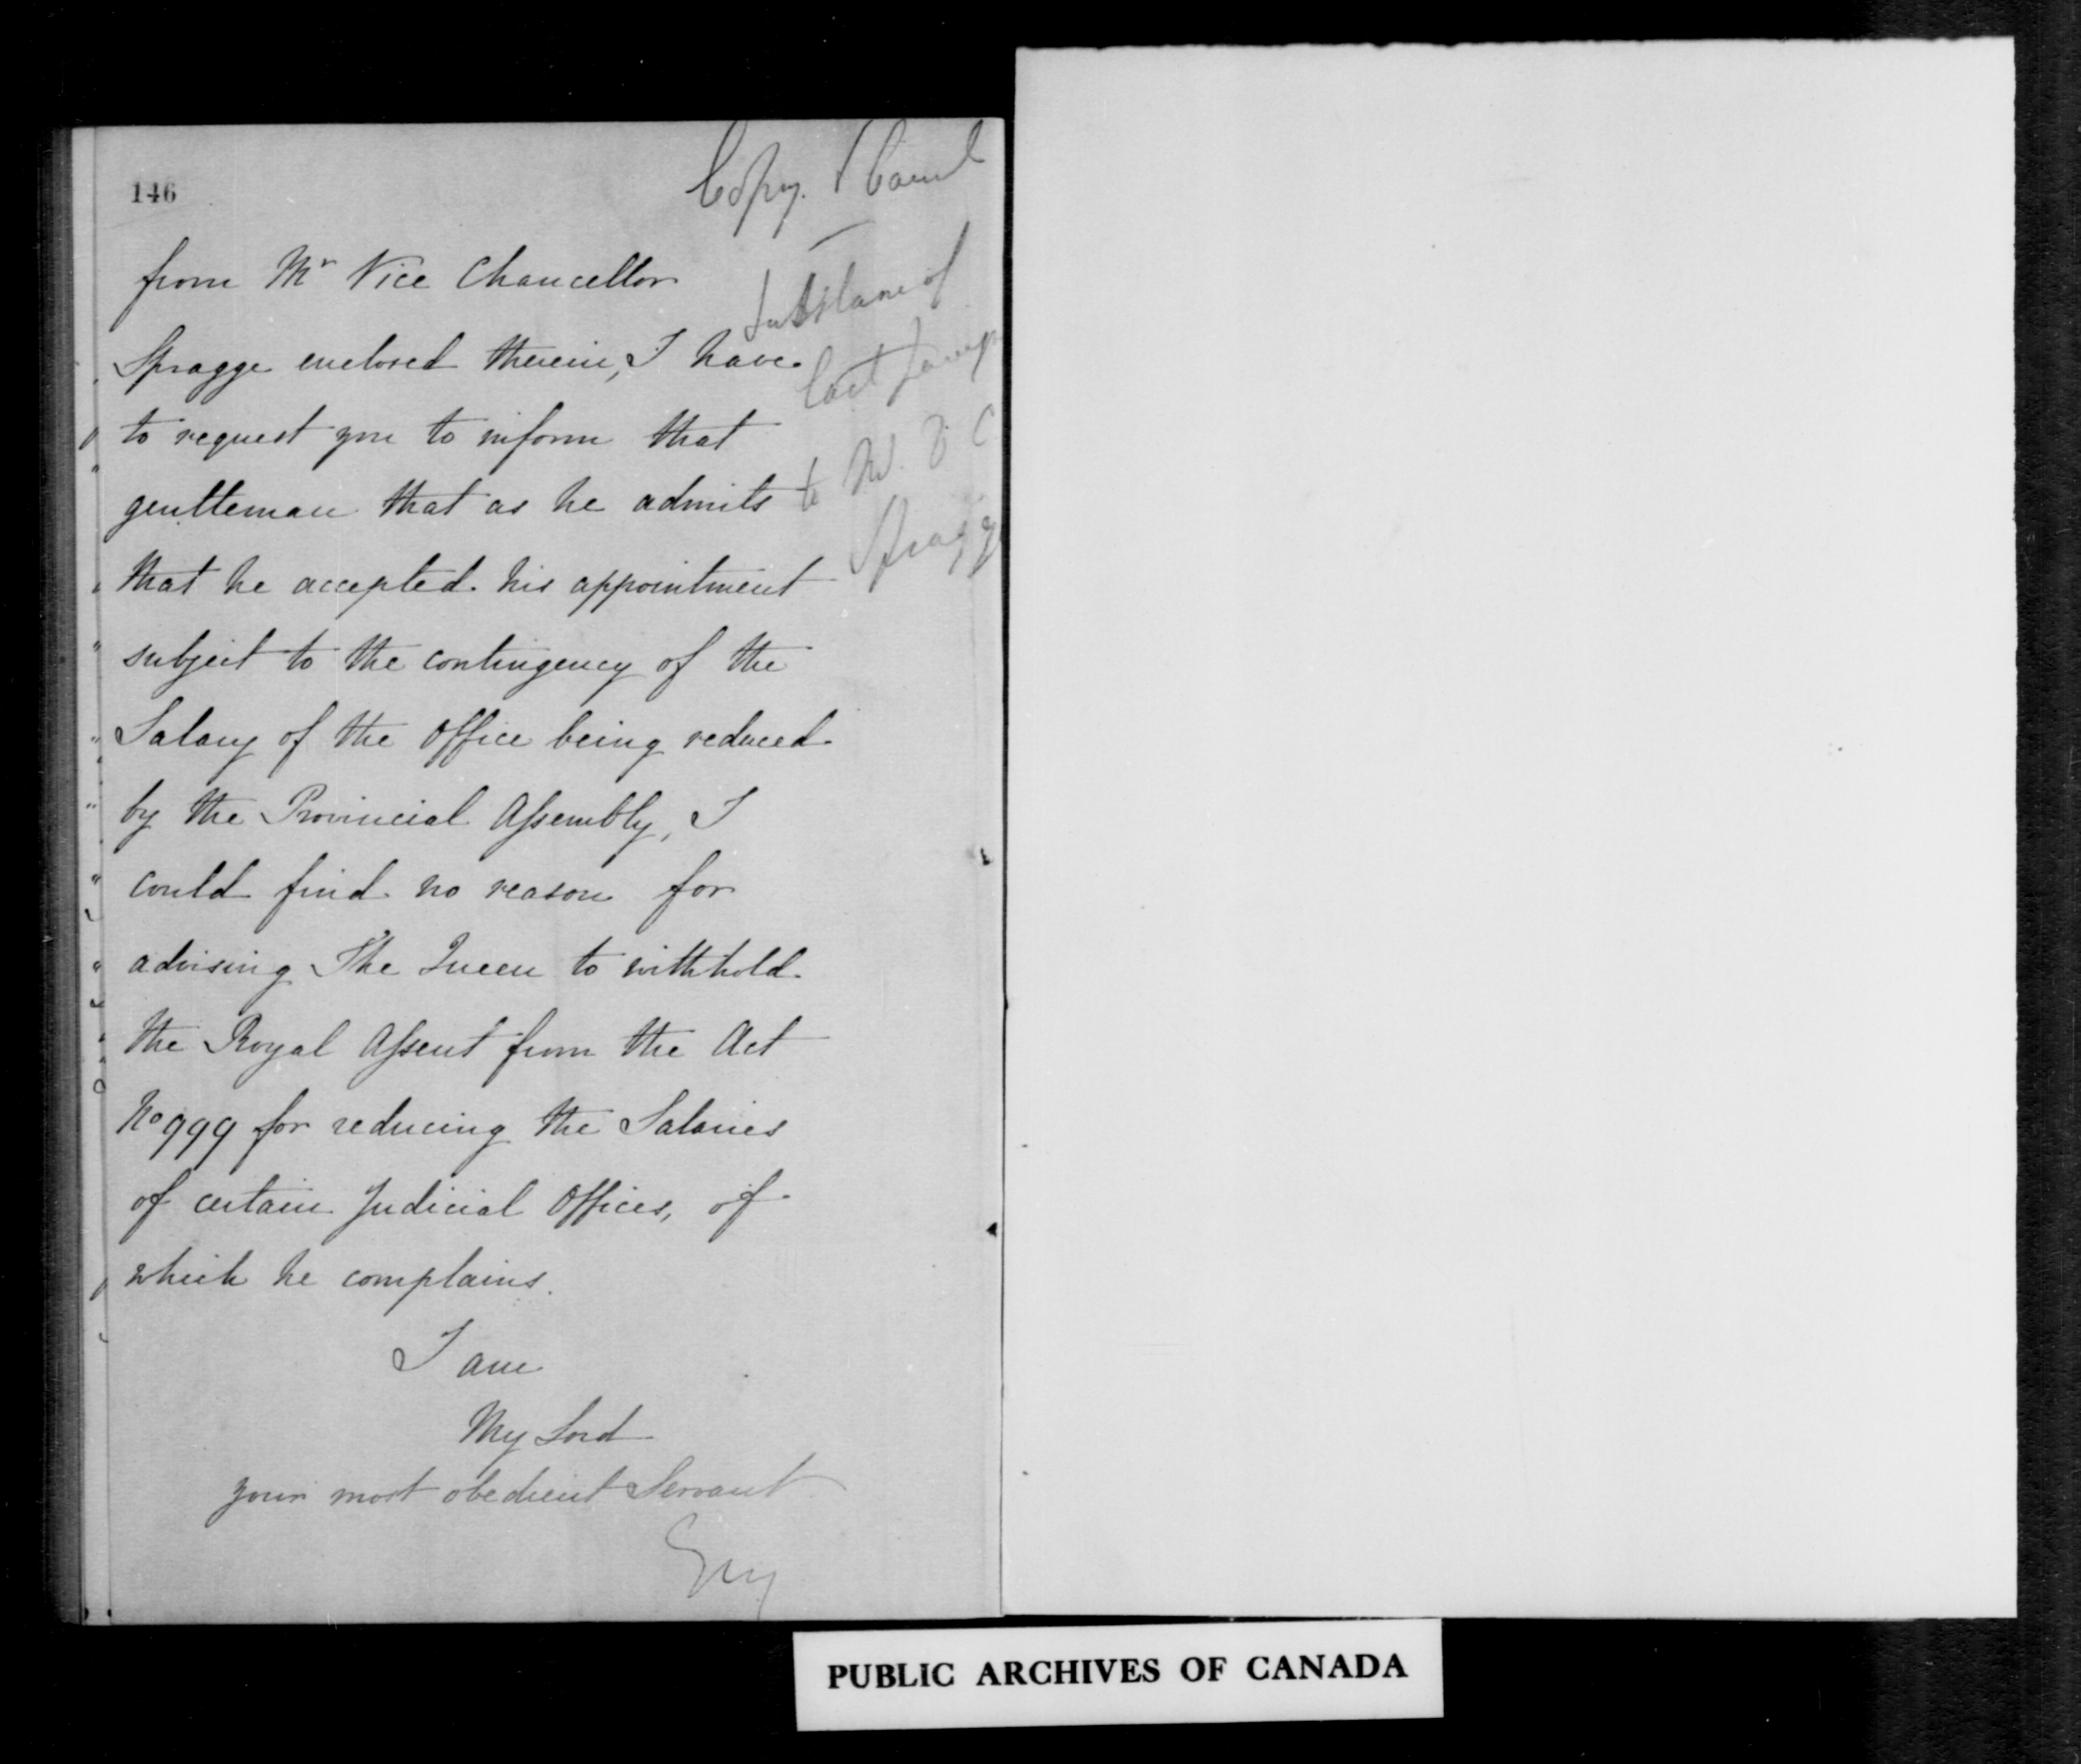 146
Copy.
Substance of
last
to M. V. C.
Spragge
from Mr Vice Chancellor
Spragge enclosed therein, I have
to request you to inform that
gentleman that as he admits
that he accepted his appointment
subject to the contingency of the
Salary of the Office being reduced
by the Provincial Assembly, I
could find no reason for
advising The Queen to withhold
the Royal Assent from the Act
No 999 for reducing the Salaries
of certain Judicial Offices, of
which he complains.
I am
My Lord
your most obedient Servant
Grey
PUBLIC ARCHIVES OF CANADA